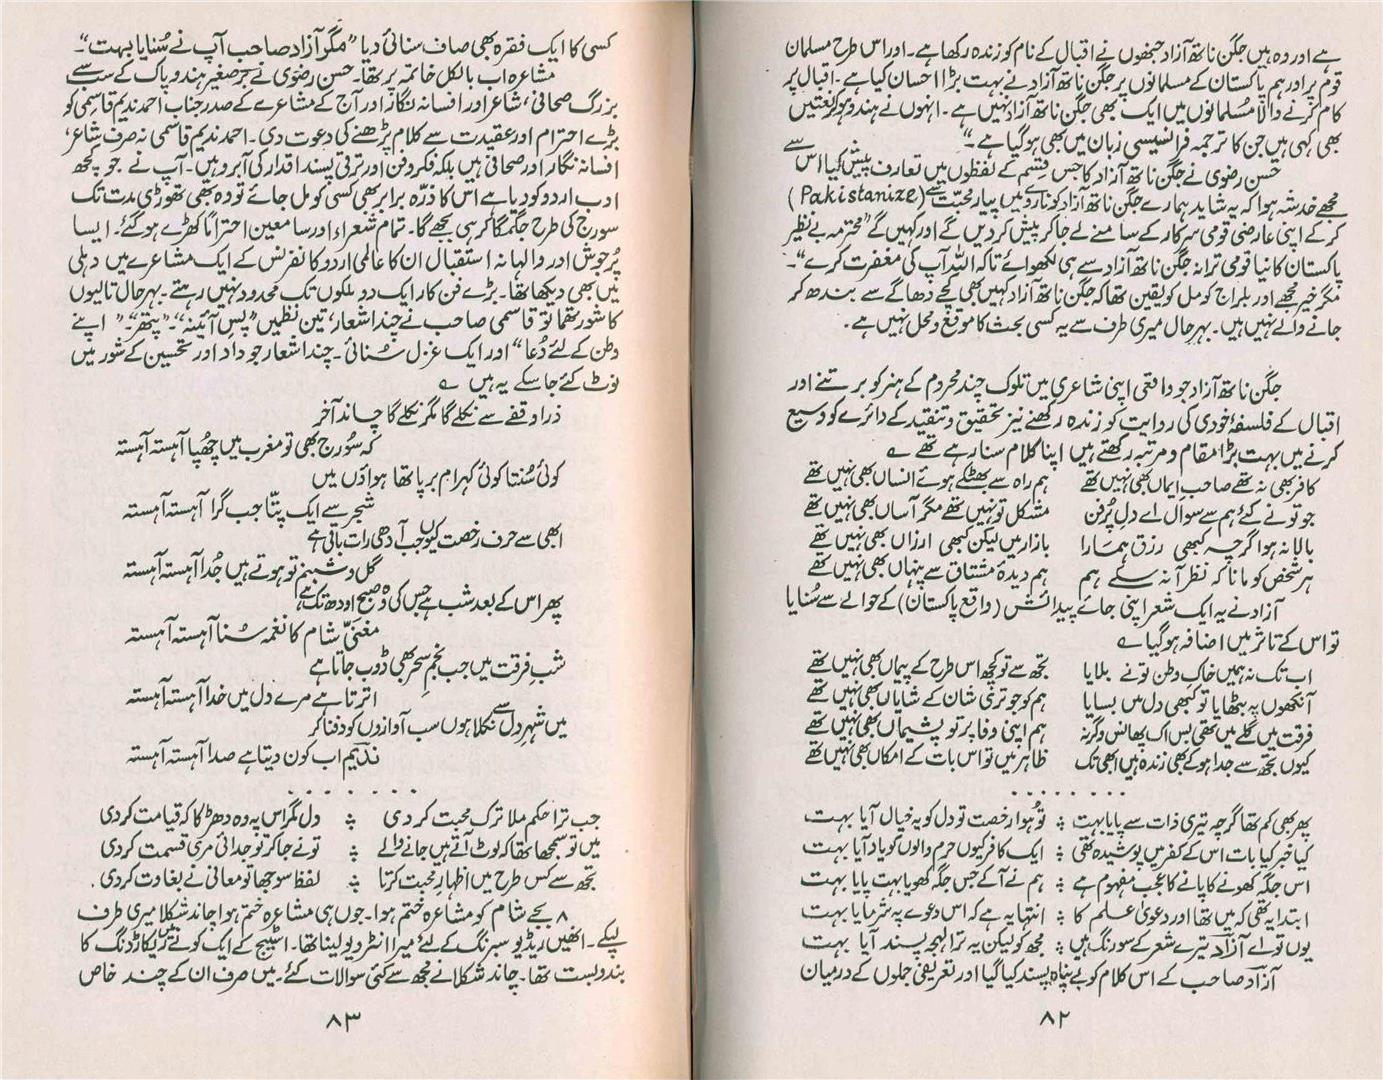 ہے اور وہ ہیں جگن ناتھ آزاد جنھوں نے اقبال کے نام کو زندہ رکھا ہے۔ اور اس طرح مسلمان
قوم پر اور ہم پاکستان کے مسلمانوں پر جگن ناتھ آزاد نے بہت بڑا احسان کیا ہے۔ اقبال پر
کام کرنے والا مسلمانوں میں ایک بھی جگن ناتھ آزاد نہیں ہے۔ انہوں نے ہندو ہو کر نعتیں
بھی کہی ہیں جن کا ترجمہ فرانسیسی زبان میں بھی ہو گیا ہے۔"
حسن رضوی نے جگن ناتھ آزاد کا جس قسم کے لفظوں میں تعارف پیش کیا اس سے
مجھے خدشہ ہوا کہ یہ شاید ہمارے جگن ناتھ آزاد کو ناروے میں پیار محبت سے (Pakistanize)
کر کے اپنی عارضی قومی سرکار کے سامنے لے جا کر پیش کر دیں گے اور کہیں گے "محترمہ بے نظیر
پاکستان کا نیا قومی ترانہ جگن ناتھ آزاد سے ہی لکھوائے تاکہ اللہ آپ کی مغفرت کرے"۔
مگر خیر مجھے اور بلراج کومل کو یقین تھا کہ جگن ناتھ آزاد کہیں بھی کچے دھاگے سے بندھ کر
جانے والے نہیں ہیں۔ بہرحال میری طرف سے یہ کسی بحث کا موقع و محل نہیں ہے۔
جگن ناتھ آزاد جو واقعی اپنی شاعری میں تلوک چند محروم کے ہنر کو برتنے اور
اقبال کے فلسفۂ خودی کی روایت کو زندہ رکھنے نیز تحقیق و تنقید کے دائرے کو وسیع
کرنے میں بہت بڑا مقام و مرتبہ رکھتے ہیں اپنا کلام سنا رہے تھے ؎
کافر بھی نہ تھے صاحبِ ایماں بھی نہیں تھے ہم راہ سے بھٹکے ہوئے انساں بھی نہیں تھے
جو تو نے کئے ہم سے سوال اے دلِ پُر فن مشکل تو نہیں تھے مگر آساں بھی نہیں تھے
بالا نہ ہوا گرچہ کبھی رزق ہمارا بازار میں لیکن کبھی ارزاں بھی نہیں تھے
ہر شخص کو مانا کہ نظر آ نہ سکے ہم ہم دیدۂ مشتاق سے پنہاں بھی نہیں تھے
آزاد نے یہ ایک شعر اپنی جائے پیدائش (واقع پاکستان) کے حوالے سے سُنایا
تو اس کے تاثر میں اضافہ ہو گیا ؎
اب تک نہ ہمیں خاکِ وطن تو نے بلایا تجھ سے تو کچھ اس طرح کے پیماں بھی نہیں تھے
آنکھوں پہ بٹھایا تو کبھی دل میں بسایا ہم گو جو تری شان کے شایاں بھی نہیں تھے
فرقت میں گلے میں تھی بس اک پھانس وگرنہ ہم اپنی وفا پر تو پشیماں بھی نہیں تھے
کیوں تجھ سے جدا ہو کے بھی زندہ ہیں ابھی تک ظاہر میں تو اس بات کے امکاں بھی نہیں تھے
........
پھر بھی کم تھا گرچہ تیری ذات سے پایا بہت ؛ تو ہوا رخصت تو دل کو یہ خیال آیا بہت
کیا خبر کیا بات اس کے کفر میں پوشیدہ تھی ؛ ایک کافر کیوں حرم والوں کو یاد آیا بہت
اس جگہ کھونے کا پانے کا عجب مفہوم ہے ؛ ہم نے آ کے جس جگہ کھویا بہت پایا بہت
ابتدا یہ تھی کہ میں تھا اور دعویٰ علم کا ؛ انتہا یہ ہے کہ اس دعوے پہ شرمایا بہت
یوں تو اے آزاد تیرے شعر کے سو رنگ ہیں ؛ مجھ کو لیکن یہ ترا لہجہ پسند آیا بہت
آزاد صاحب کے اس کلام کو بے پناہ پسند کیا گیا اور تعریفی جملوں کے درمیان
۸۲
کسی کا ایک فقرہ بھی صاف سنائی دیا "مگر آزاد صاحب آپ نے سُنایا بہت"۔
مشاعرہ اب بالکل خاتمہ پر تھا۔ حسن رضوی نے برصغیر ہند و پاک کے سب سے
بزرگ صحافی، شاعر اور افسانہ نگار اور آج کے مشاعرے کے صدر جناب احمد ندیم قاسمی کو
بڑے احترام اور عقیدت سے کلام پڑھنے کی دعوت دی۔ احمد ندیم قاسمی نہ صرف شاعر،
افسانہ نگار اور صحافی ہیں بلکہ فکر و فن اور ترقی پسند اقدار کی آبرو ہیں۔ آپ نے جو کچھ
ادب اردو کو دیا ہے اس کا ذرّہ برابر بھی کسی کو مل جائے تو وہ بھی تھوڑی مدت تک
سورج کی طرح جگمگا کر ہی بجھے گا۔ تمام شعراء اور سامعین احتراماً کھڑے ہو گئے۔ ایسا
پُرجوش اور والہانہ استقبال ان کا عالمی اردو کانفرنس کے ایک مشاعرے میں دہلی
میں بھی دیکھا تھا۔ بڑے فن کار ایک دو ملکوں تک محدود نہیں رہتے۔ بہرحال تالیوں
کا شور تھما تو قاسمی صاحب نے چند اشعار، تین نظمیں "پسِ آئینہ"۔ "پتھر"۔ "اپنے
وطن کے لئے دُعا" اور ایک غزل سُنائی۔ چند اشعار جو داد اور تحسین کے شور میں
نوٹ کئے جا سکے یہ ہیں ؎
ذرا وقفے سے نکلے گا مگر نکلے گا چاند آخر
کہ سُورج بھی تو مغرب میں چھُپا آہستہ آہستہ
کوئی سُنتا کوئی کہرام برپا تھا ہواؤں میں
شجر سے ایک پتّا جب گرا آہستہ آہستہ
ابھی سے حرفِ رخصت کیوں جب آدھی رات باقی ہے
گل و شبنم تو ہوتے ہیں جُدا آہستہ آہستہ
پھر اس کے بعد شب ہے جس کی حد صبحِ اودھ تک ہے
مغنّیِ شام کا نغمہ سُنا آہستہ آہستہ
شبِ فرقت میں جب نجمِ سحر بھی ڈوب جاتا ہے
اترتا ہے مرے دل میں خدا آہستہ آہستہ
میں شہرِ دل سے نکلا ہوں سب آوازوں کو دفنا کر
ندیم اب کون دیتا ہے صدا آہستہ آہستہ
.......
جب ترا حکم ملا ترک محبت کر دی ؛ دل مگر اس پہ وہ دھڑکا کہ قیامت کر دی
میں تو سمجھا تھا کہ لوٹ آتے ہیں جانے والے ؛ تو نے جا کر تو جدائی مری قسمت کر دی
تجھ سے کس طرح میں اظہارِ محبت کرتا ؛ لفظ سوجھا تو معانی نے بغاوت کر دی۔
۸ بجے شام کو مشاعرہ ختم ہوا۔ جوں ہی مشاعرہ ختم ہوا چاند شکلا میری طرف
لپکے۔ انھیں ریڈیو سبرنگ کے لئے میرا انٹرویو لینا تھا۔ اسٹیج کے ایک کونے میں ریکارڈنگ کا
بندوبست تھا۔ چاند شکلا نے مجھ سے کئی سوالات کئے۔ میں صرف ان کے چند خاص
۸۳